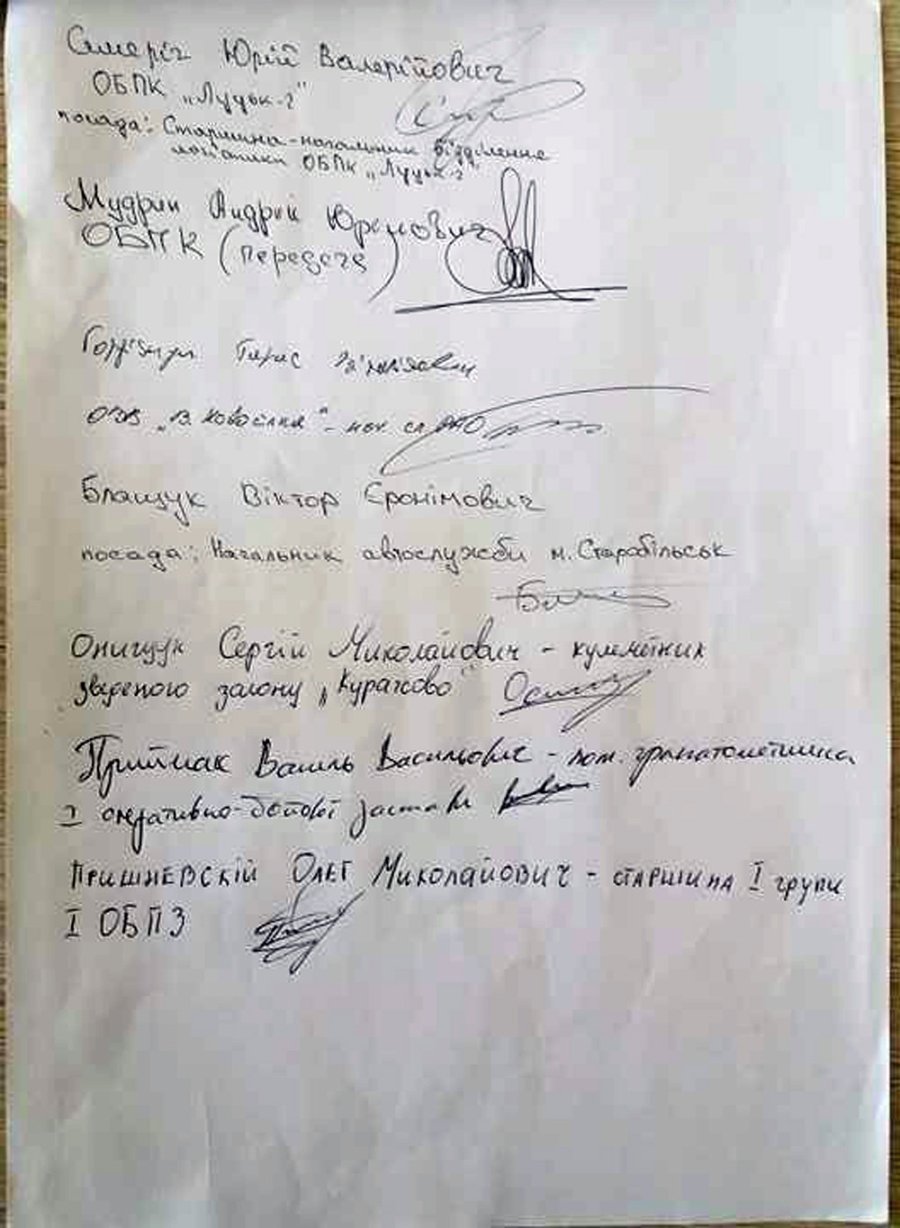 Смеріч Юрій Валерійович
ОБПК „Луцьк-2"
посада: Старшина-начальник відділення
логістики ОБПК „Луцьк-2"
Мудрик Андрій Юрійович
ОБПК (передача)
Тарас
ОЗВ „В. Новосілка" - нач. сл РАО
Блащук Віктор Єронімович
посада: Начальник автослужби м. Старобільськ
Онищук Сергій Миколайович - кулеметник
зведеного загону „Курахово"
Приймак Василь Васильович - пом. гранатометника
I оперативно-бойової застави
Пришневскій Олег Миколайович - старшина I групи
I ОБПЗ